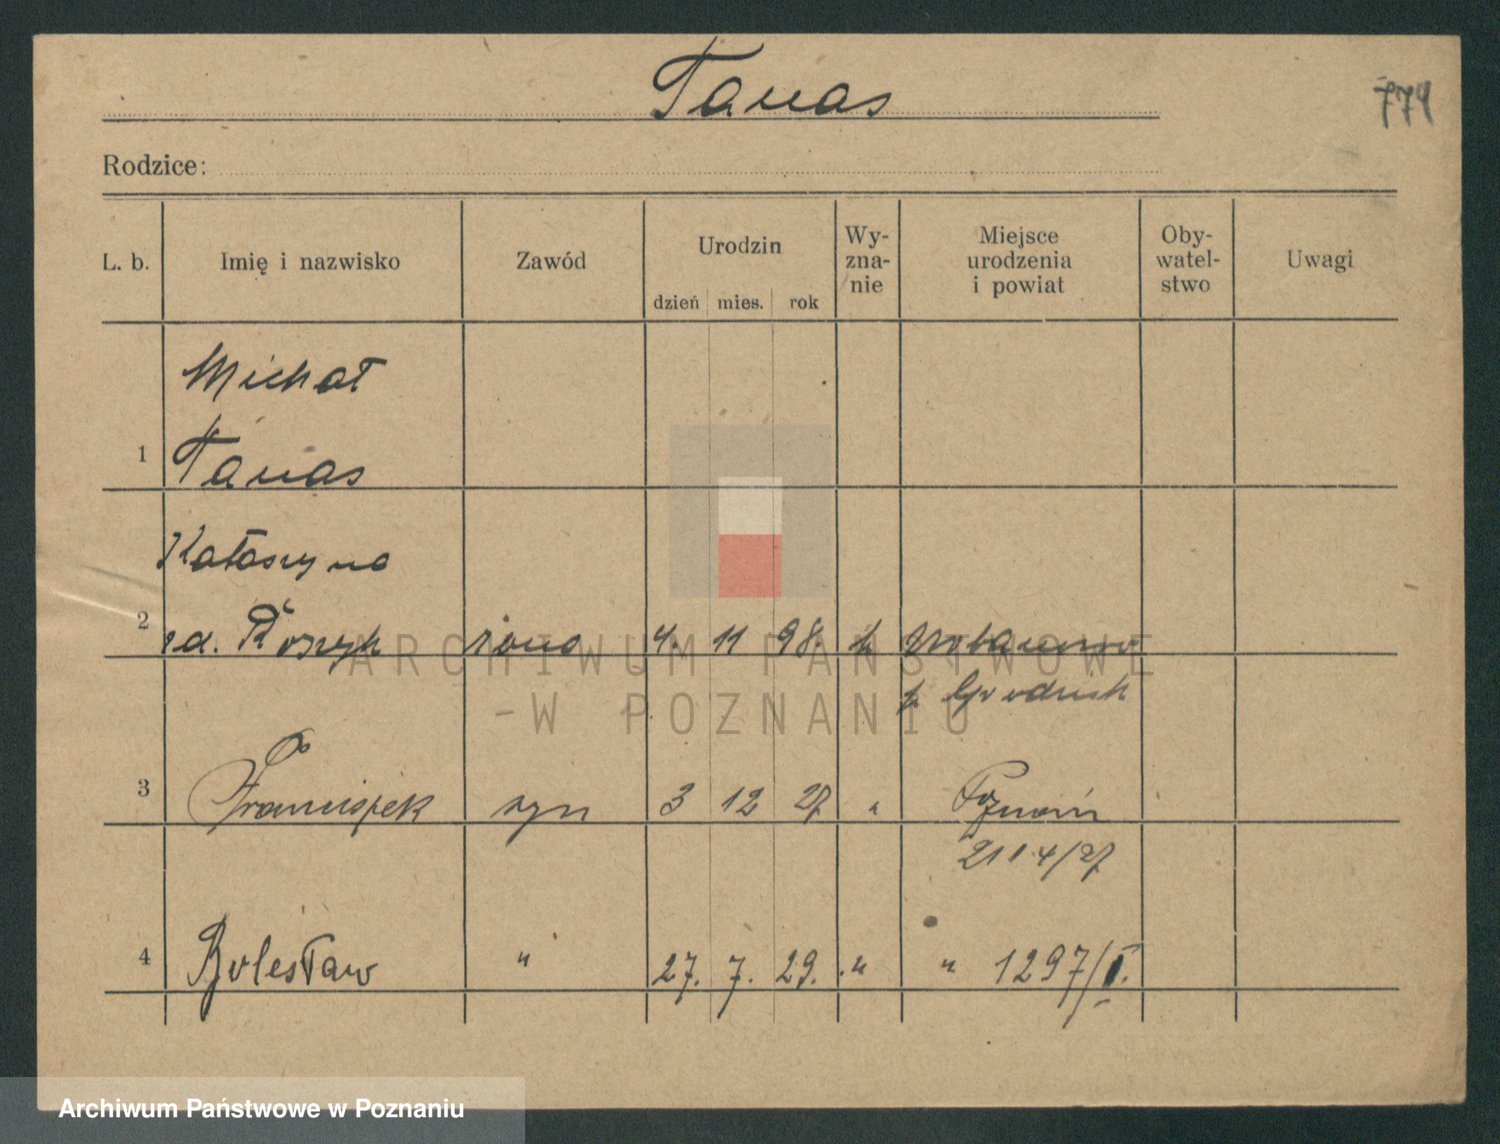 Tanas
774
Rodzice:
L. b. Imię i nazwisko Zawód Urodzin dzień mies. rok Wy-zna-nie Miejsce urodzenia i powiat Oby-watel-stwo Uwagi
Michał
1 Tanas
Katarzyna
2 żona 4. 11 98. k
p Grodzisk
3 Franciszek syn 3 12 27 " Poznań
2114/27
4 Bolesław " 27. 7. 29. " " 1297/I.
ARCHIWUM PAŃSTWOWE
W POZNANIU
Archiwum Państwowe w Poznaniu